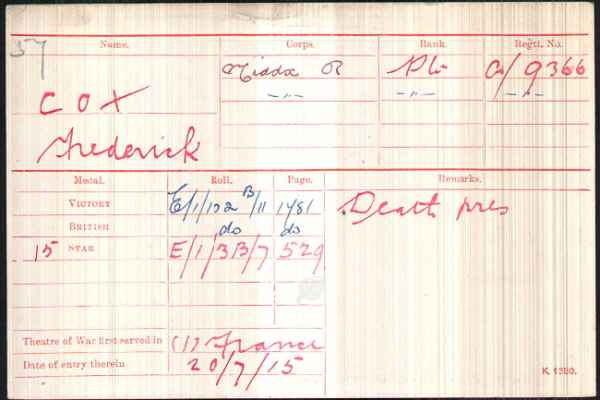 57
Name. Corps. Rank. Regtl. No.
Middx R Pte G/9366
—〃— —〃— —〃—
COX
Frederick
Medal. Roll. Page. Remarks.
VICTORY E/1/102 B/11 1481 Death pres
BRITISH do do
15 STAR E/1/3B/7 529
Theatre of War first served in (1) France
Date of entry therein 20/7/15
K. 1380.